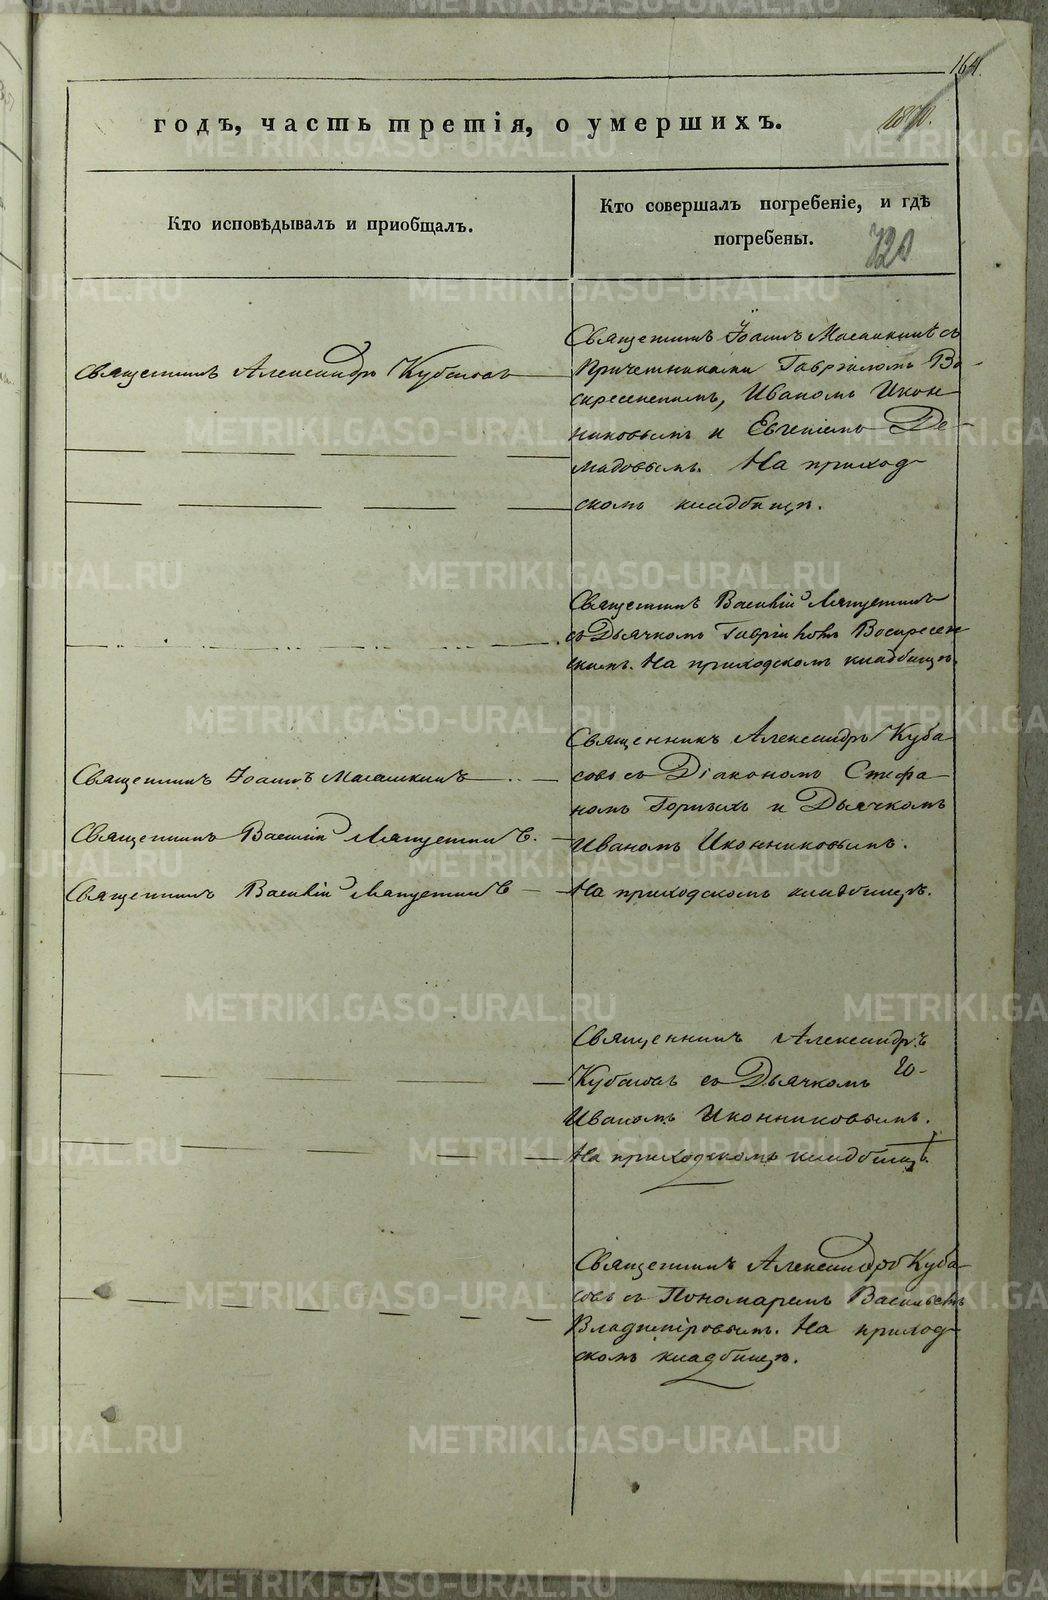 164.
годъ, часть третія, о умершихъ.
Кто исповѣдывалъ и приобщалъ.
Кто совершалъ погребеніе, и гдѣ
погребены.
720
Священникъ Александръ Кубасовъ
Священникъ Іоаннъ съ
Причетниками Гавріиломъ Во-
скресенскимъ, Иваномъ Икон-
никовымъ и Евгеніемъ Де-
мидовымъ. На приход-
скомъ кладбищѣ.
Священникъ Василій Ляпустинъ
съ Дьячкомъ Воскресен-
скимъ. На приходскомъ кладбищѣ.
Священникъ Іоаннъ
Священникъ Василій Ляпустинъ.
Священникъ Василій Ляпустинъ
Священникъ Александръ Куба-
совъ съ Діакономъ Стефа-
номъ Горныхъ и Дьячкомъ
Иваномъ Иконниковымъ.
На приходскомъ кладбищѣ.
Священникъ Александръ
Кубасовъ съ Дьячкомъ
Иваномъ Иконниковымъ.
На приходскомъ кладбищѣ.
Священникъ Александръ Куба-
совъ съ Пономаремъ
Владиміровымъ. На приход-
скомъ кладбищѣ.
METRIKI.GASO-URAL.RU